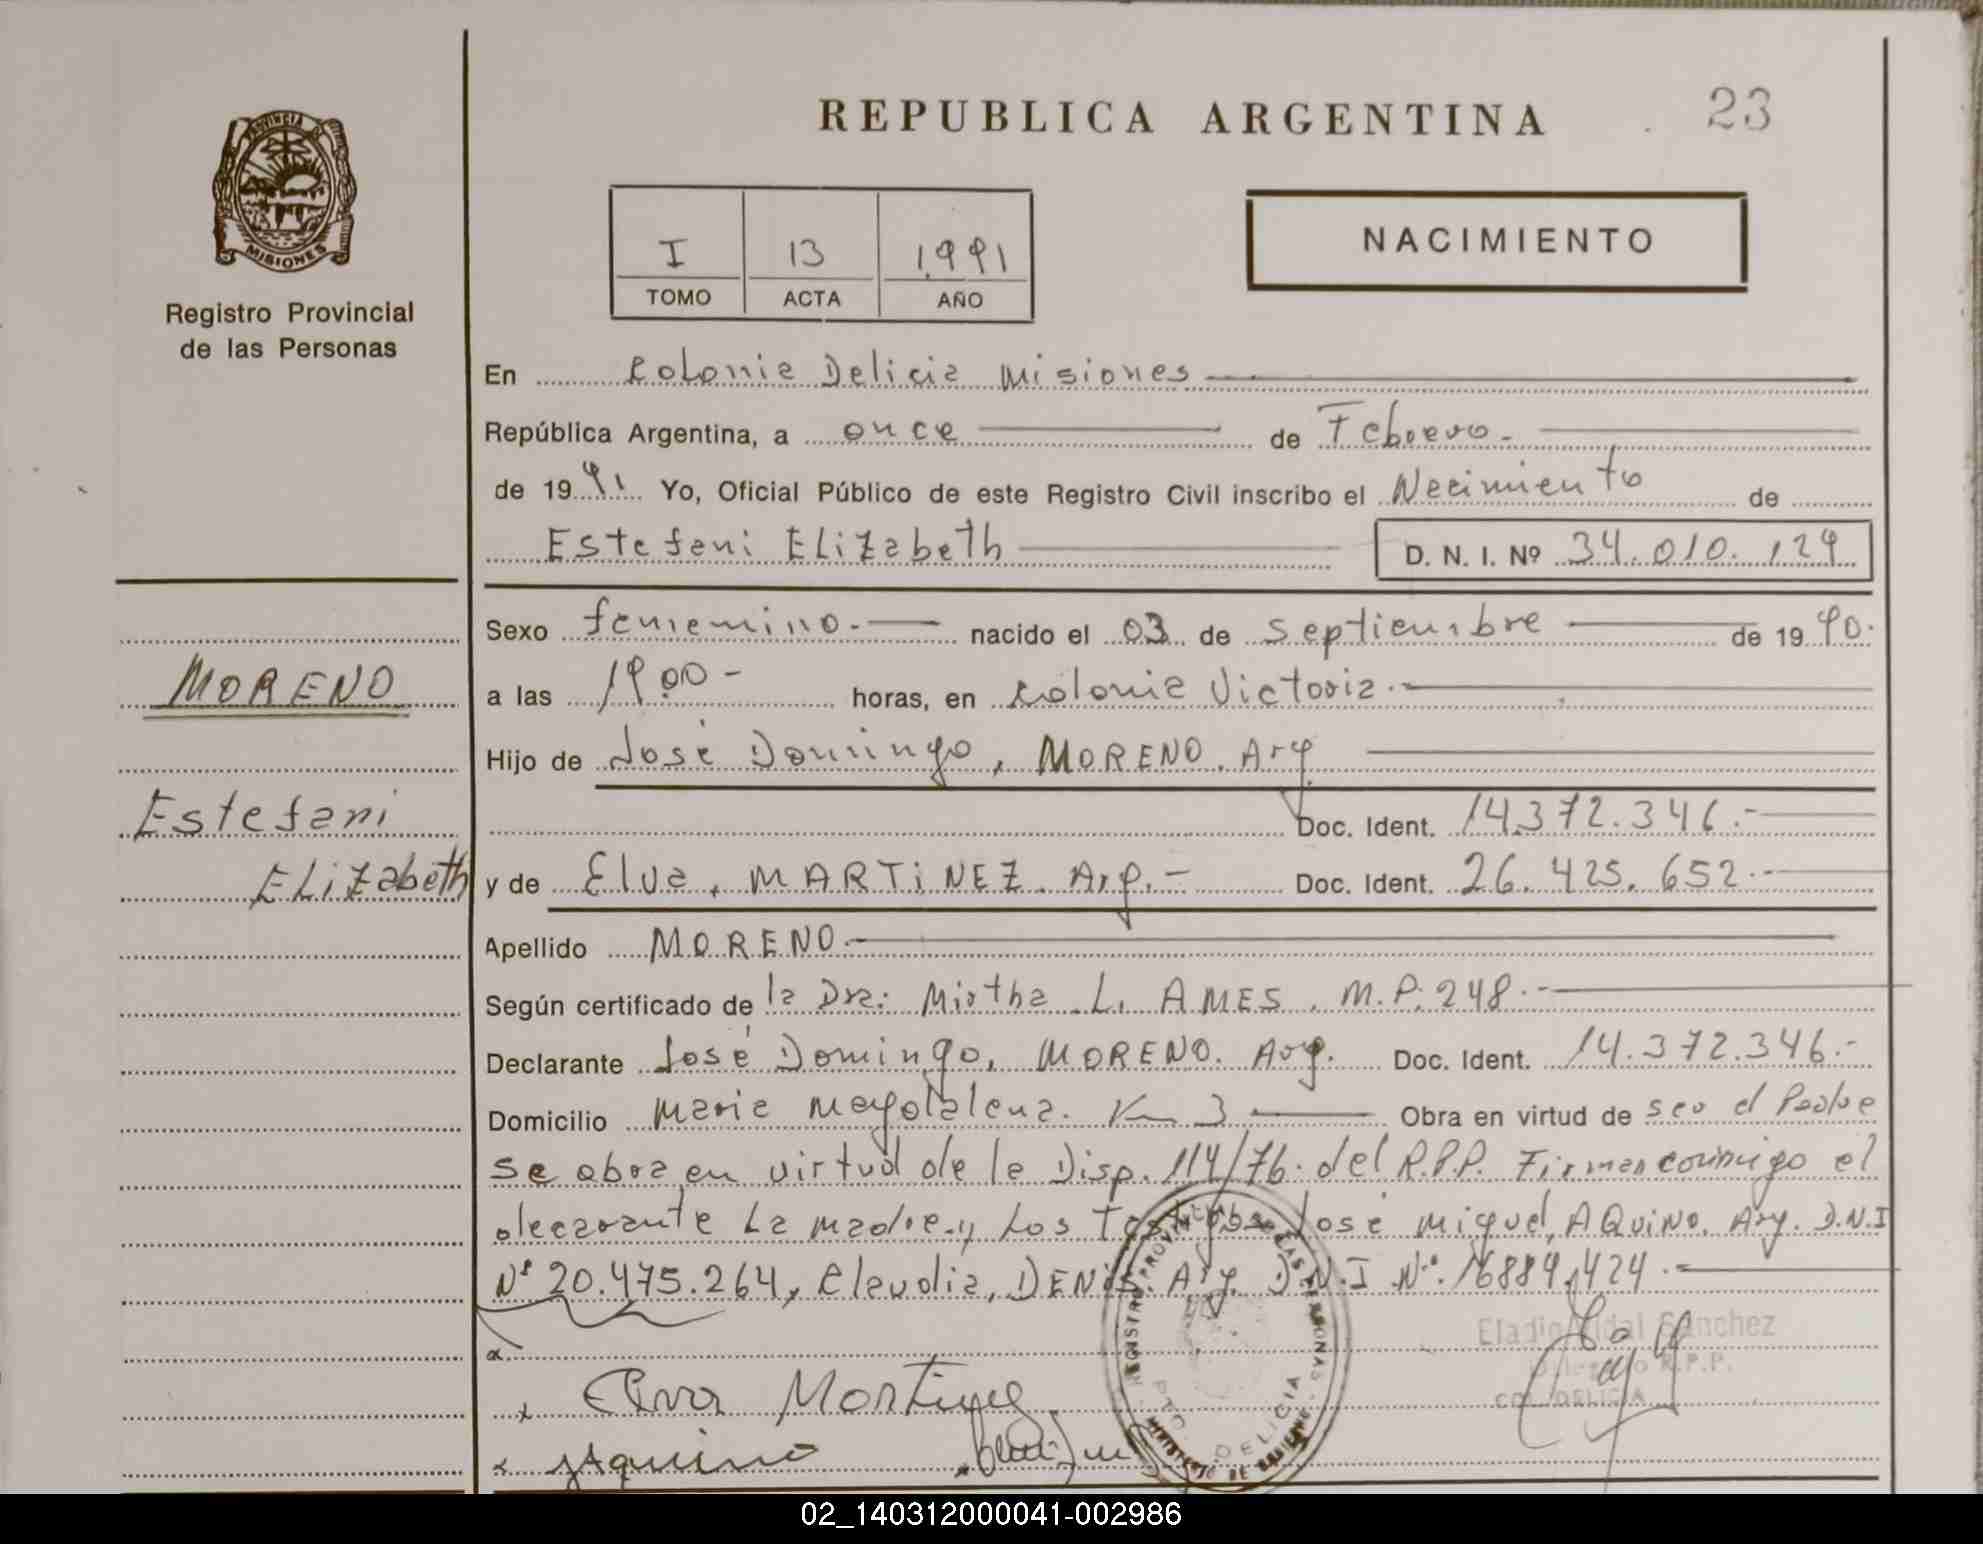 REPUBLICA ARGENTINA
23
PROVINCIA DE
MISIONES
Registro Provincial
de las Personas
I 13 1991
TOMO ACTA AÑO
NACIMIENTO
En Colonia Delicia Misiones
República Argentina, a once de Febrero.
de 1991 Yo, Oficial Público de este Registro Civil inscribo el Necimiento de
Estefani Elizabeth D. N. I. Nº 34.010.129
Sexo femenino.- nacido el 03 de septiembre de 1990.
a las 19.00- horas, en Colonia Victoria.-
MORENO
Hijo de José Domingo, MORENO. Arg
Doc. Ident. 14.372.346.-
Estefani
Elizabeth
y de Elva, MARTiNEZ. Arg.- Doc. Ident. 26.425.652.-
Apellido MORENO.-
Según certificado de la Dra: Mirtha L. AMES. M.P. 248.-
Declarante José Domingo, MORENO. Arg. Doc. Ident. 14.372.346.-
Domicilio Maria Magdalena. Km 3 Obra en virtud de ser el Padre
se obra en virtud de la Disp. 114/76. del R.P.P. Firman conmigo el
declarante La madre y Los Testigos José Miguel, AQUiNO. Arg. D.N.I
Nº 20.475.264, Claudia, DENiS. Arg. D.N.I Nº. 16884.424.-
Eladio Vidal Sánchez
Delegado R.P.P.
COL. DELICIA
Elva Martinez
JAquino
REGISTRO PROVINCIAL DE LAS PERSONAS
PTO. DELICIA
MINISTERIO DE GOBIERNO
02_140312000041-002986